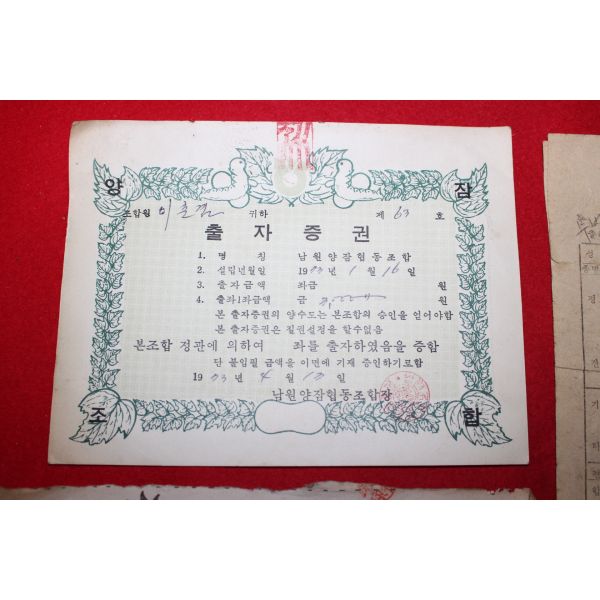 양 잠
조합원 이 귀하 제 63 호
출 자 증 권
1. 명 칭 남원양잠협동조합
2. 설립년월일 19 년 1 월 16 일
3. 출자금액 좌금 원
4. 출좌1좌금액 금 원
본 출자증권의 양수도는 본조합의 승인을 얻어야함
본 출자증권은 질권설정을 할수없음
본조합 정관에 의하여 좌를 출자하였음을 증함
단 불입필 금액을 이면에 기재 증인하기로함
19 년 4 월 13 일
남원양잠협동조합장
조 합